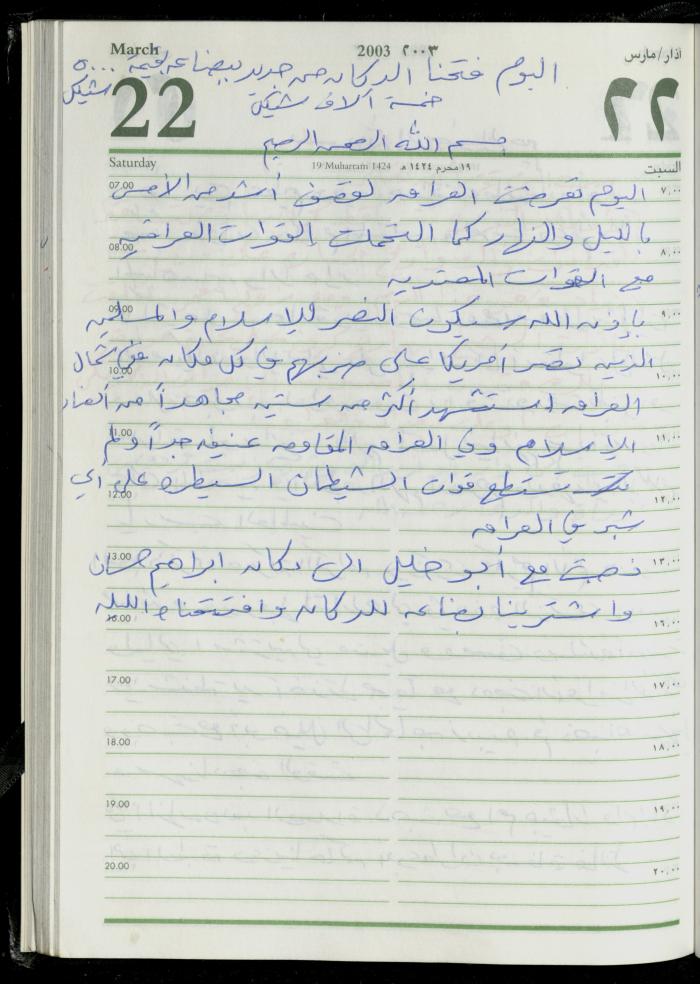 March
2003 ٢٠٠٣
آذار/مارس
اليوم فتحنا الدكان من جديد ببضاعه بقيمة ٥٠٠٠ شيكل
22
خمسة آلاف شيكل
٢٢
بسم الله الرحمن الرحيم
Saturday
19 Muharram 1424 ١٩ محرم ١٤٢٤ هـ
السبت
07.00 اليوم تعرضت العراق لقصف أشد من الأمس ٧,٠٠
بالليل والنهار كما التحمت القوات العراقيه
08.00 ٨,٠٠
مع القوات المعتديه
09.00 بإذن الله سيكون النصر للإسلام والمسلمين ٩,٠٠
الذين تصر أمريكا على حربهم في كل مكان ففي شمال
10.00 ١٠,٠٠
العراق استشهد أكثر من ستين مجاهداً من أنصار
11.00 الإسلام وفي العراق المقاومه عنيفه جداً ولم ١١,٠٠
تستطع قوات الشيطان السيطره على أي
12.00 ١٢,٠٠
شبر في العراق
13.00 ذهبت مع أبو خليل الى دكان ابراهيم حسان ١٣,٠٠
واشترينا بضاعه للدكان وافتتحناه الليله
16.00 ١٦,٠٠
17.00 ١٧,٠٠
18.00 ١٨,٠٠
19.00 ١٩,٠٠
20.00 ٢٠,٠٠